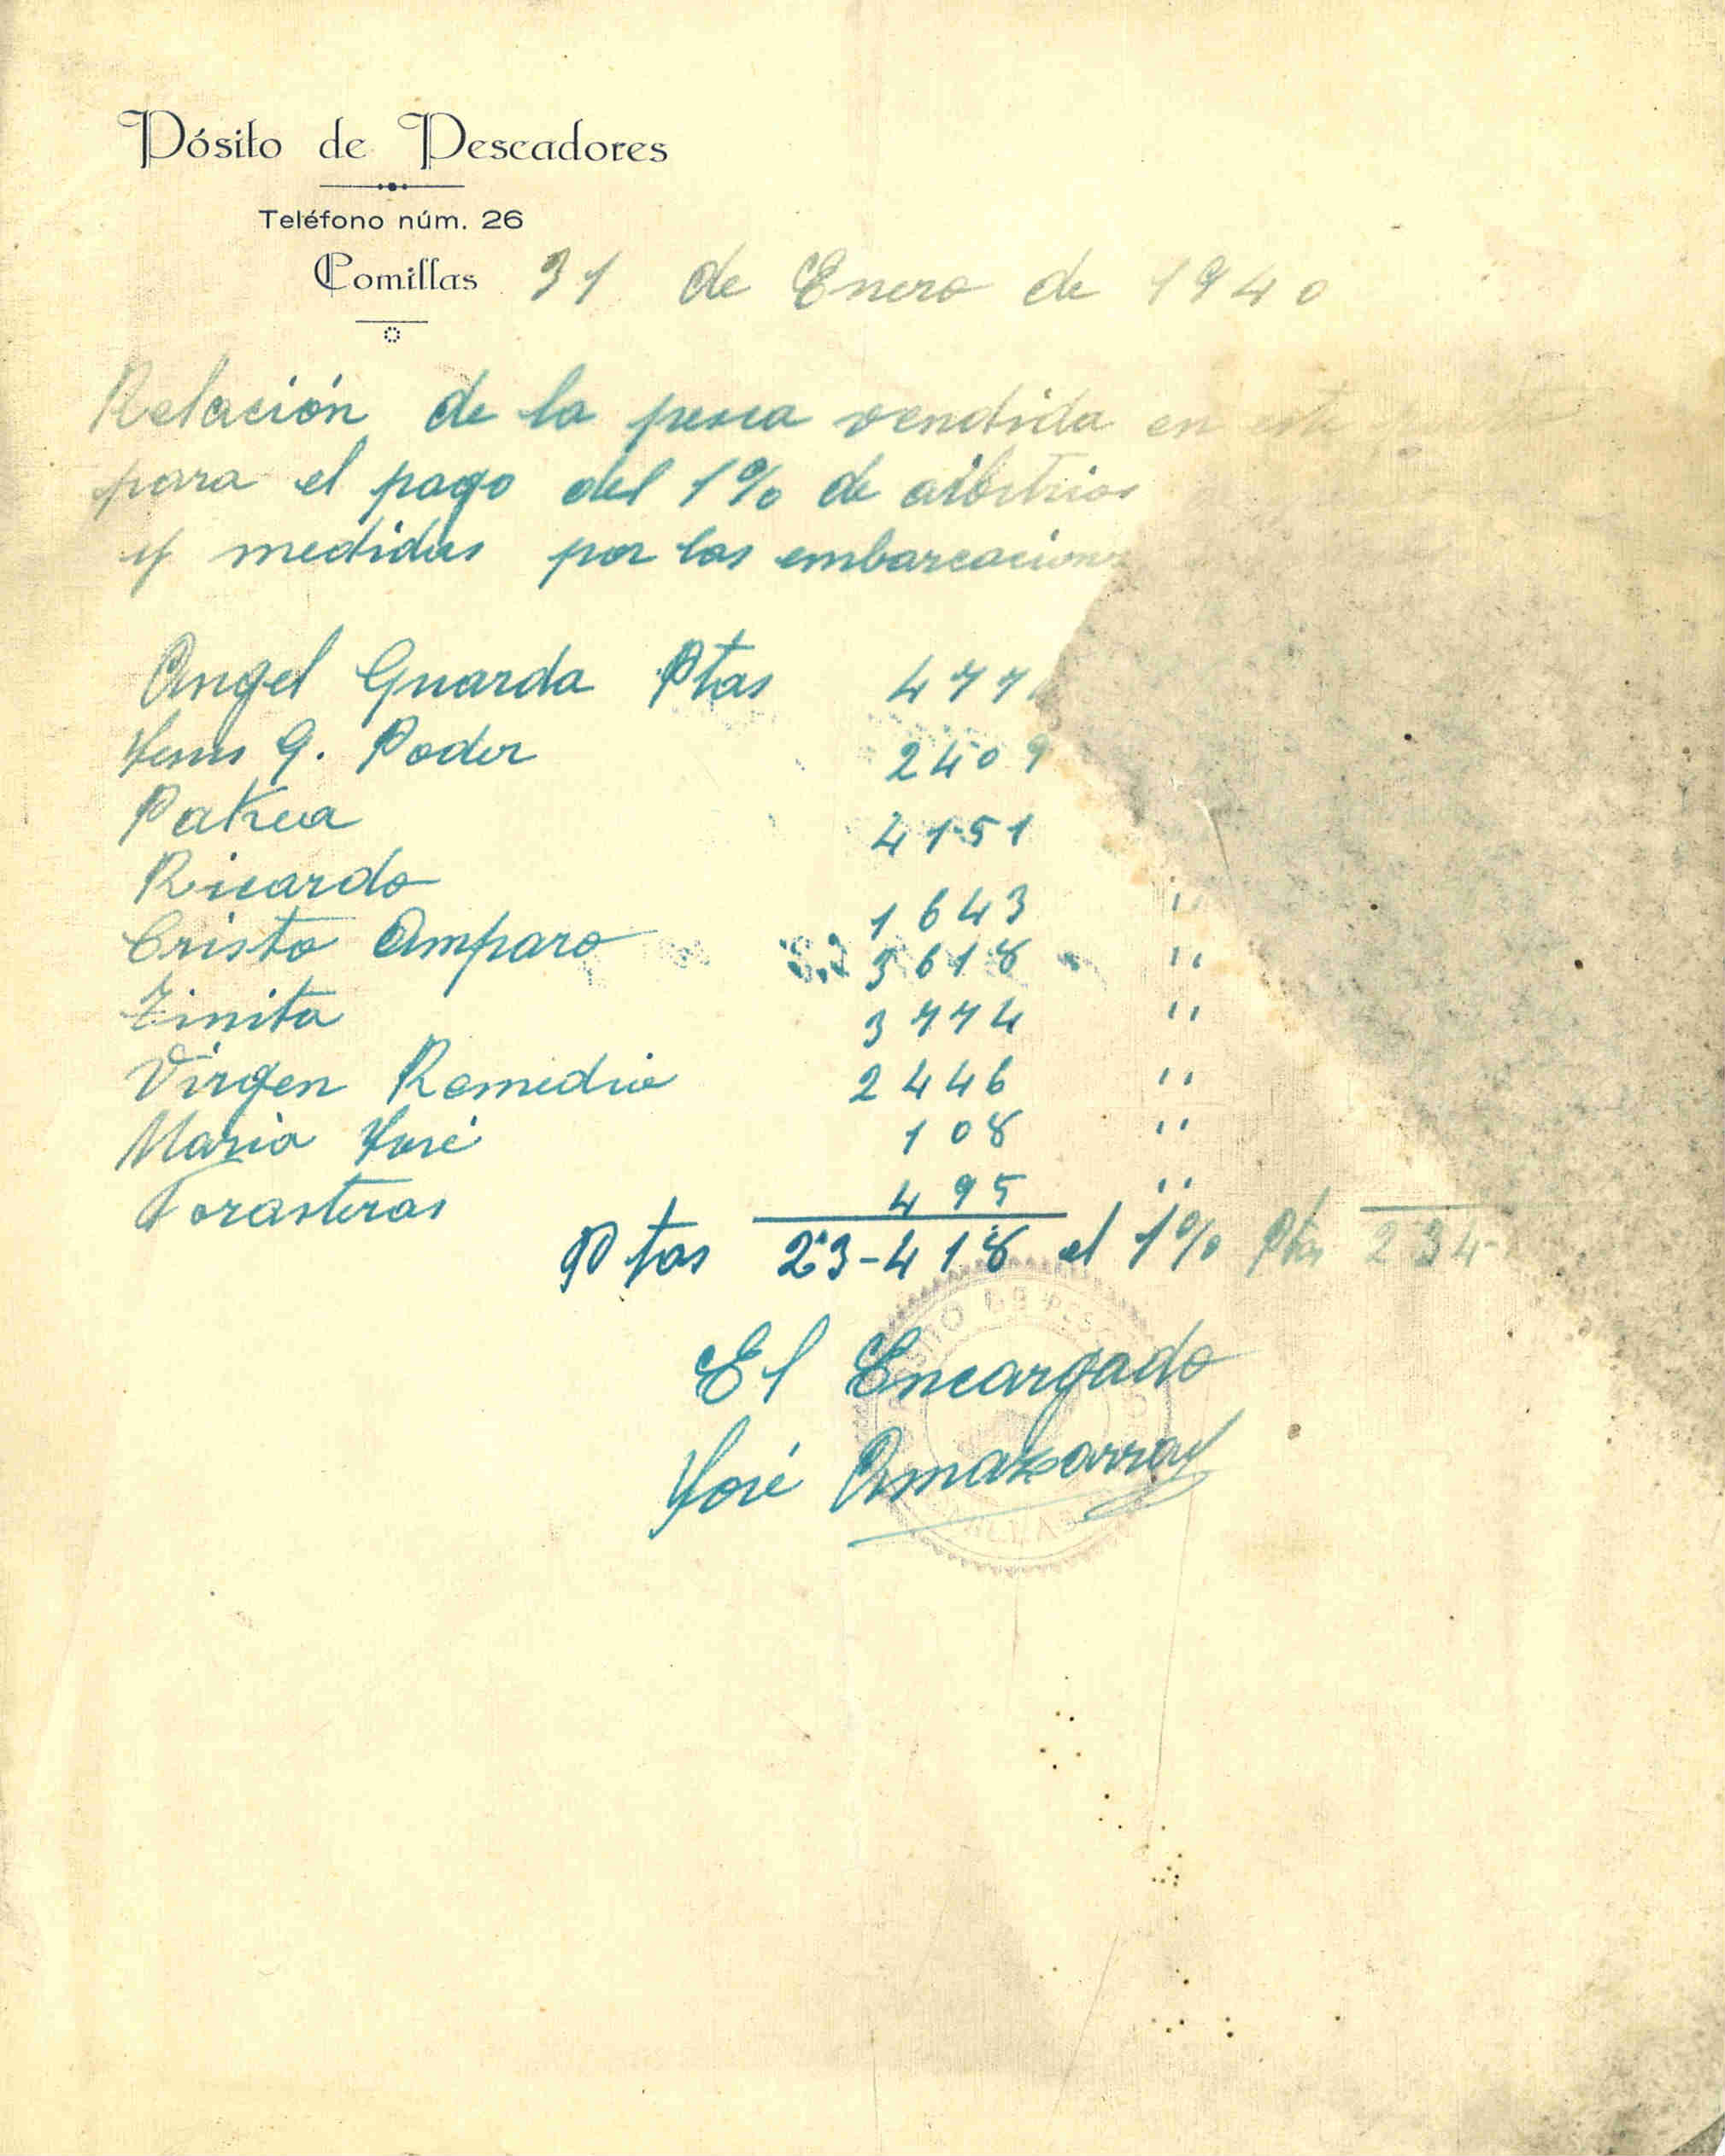 Pósito de Pescadores
Teléfono núm. 26
Comillas 31 de Enero de 1940
Relación de la pesca vendida en este
para el pago del 1% de arbitrios
y medidas por las embarcaciones
Angel Guarda Ptas 477
Jesus G. Poder 2409
Pakea 4151
Ricardo 1643 "
Cristo Amparo 3618 "
Zinita 3774 "
Virgen Remedio 2446 "
Maria José 108 "
Forasteros 495 "
Ptas 23-418 el 1% Ptas 234-
El Encargado
José Amazarray
POSITO DE PESCADORES
COMILLAS